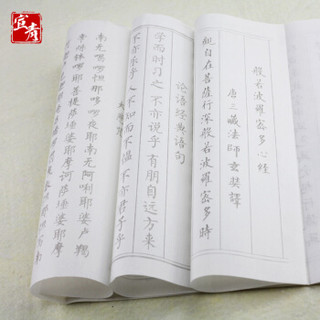 宜斋
般若波羅蜜多心經
唐三藏法師玄奘譯
觀自在菩薩行深般若波羅蜜多時
论语经典语句
学而时习之 不亦说乎 有朋自远方来
不亦乐乎 人不知而不愠 不亦君子乎
南无喝啰怛那哆啰夜耶南无阿唎耶婆卢羯
帝烁钵啰耶菩提萨埵婆耶摩诃萨埵婆耶摩